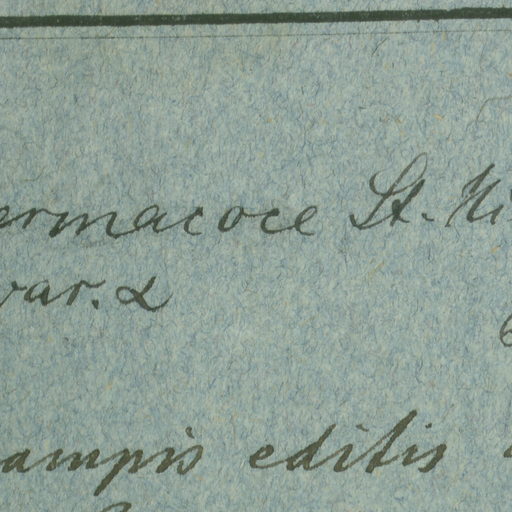 ermacoce St. Ni
var. α
ampis editis